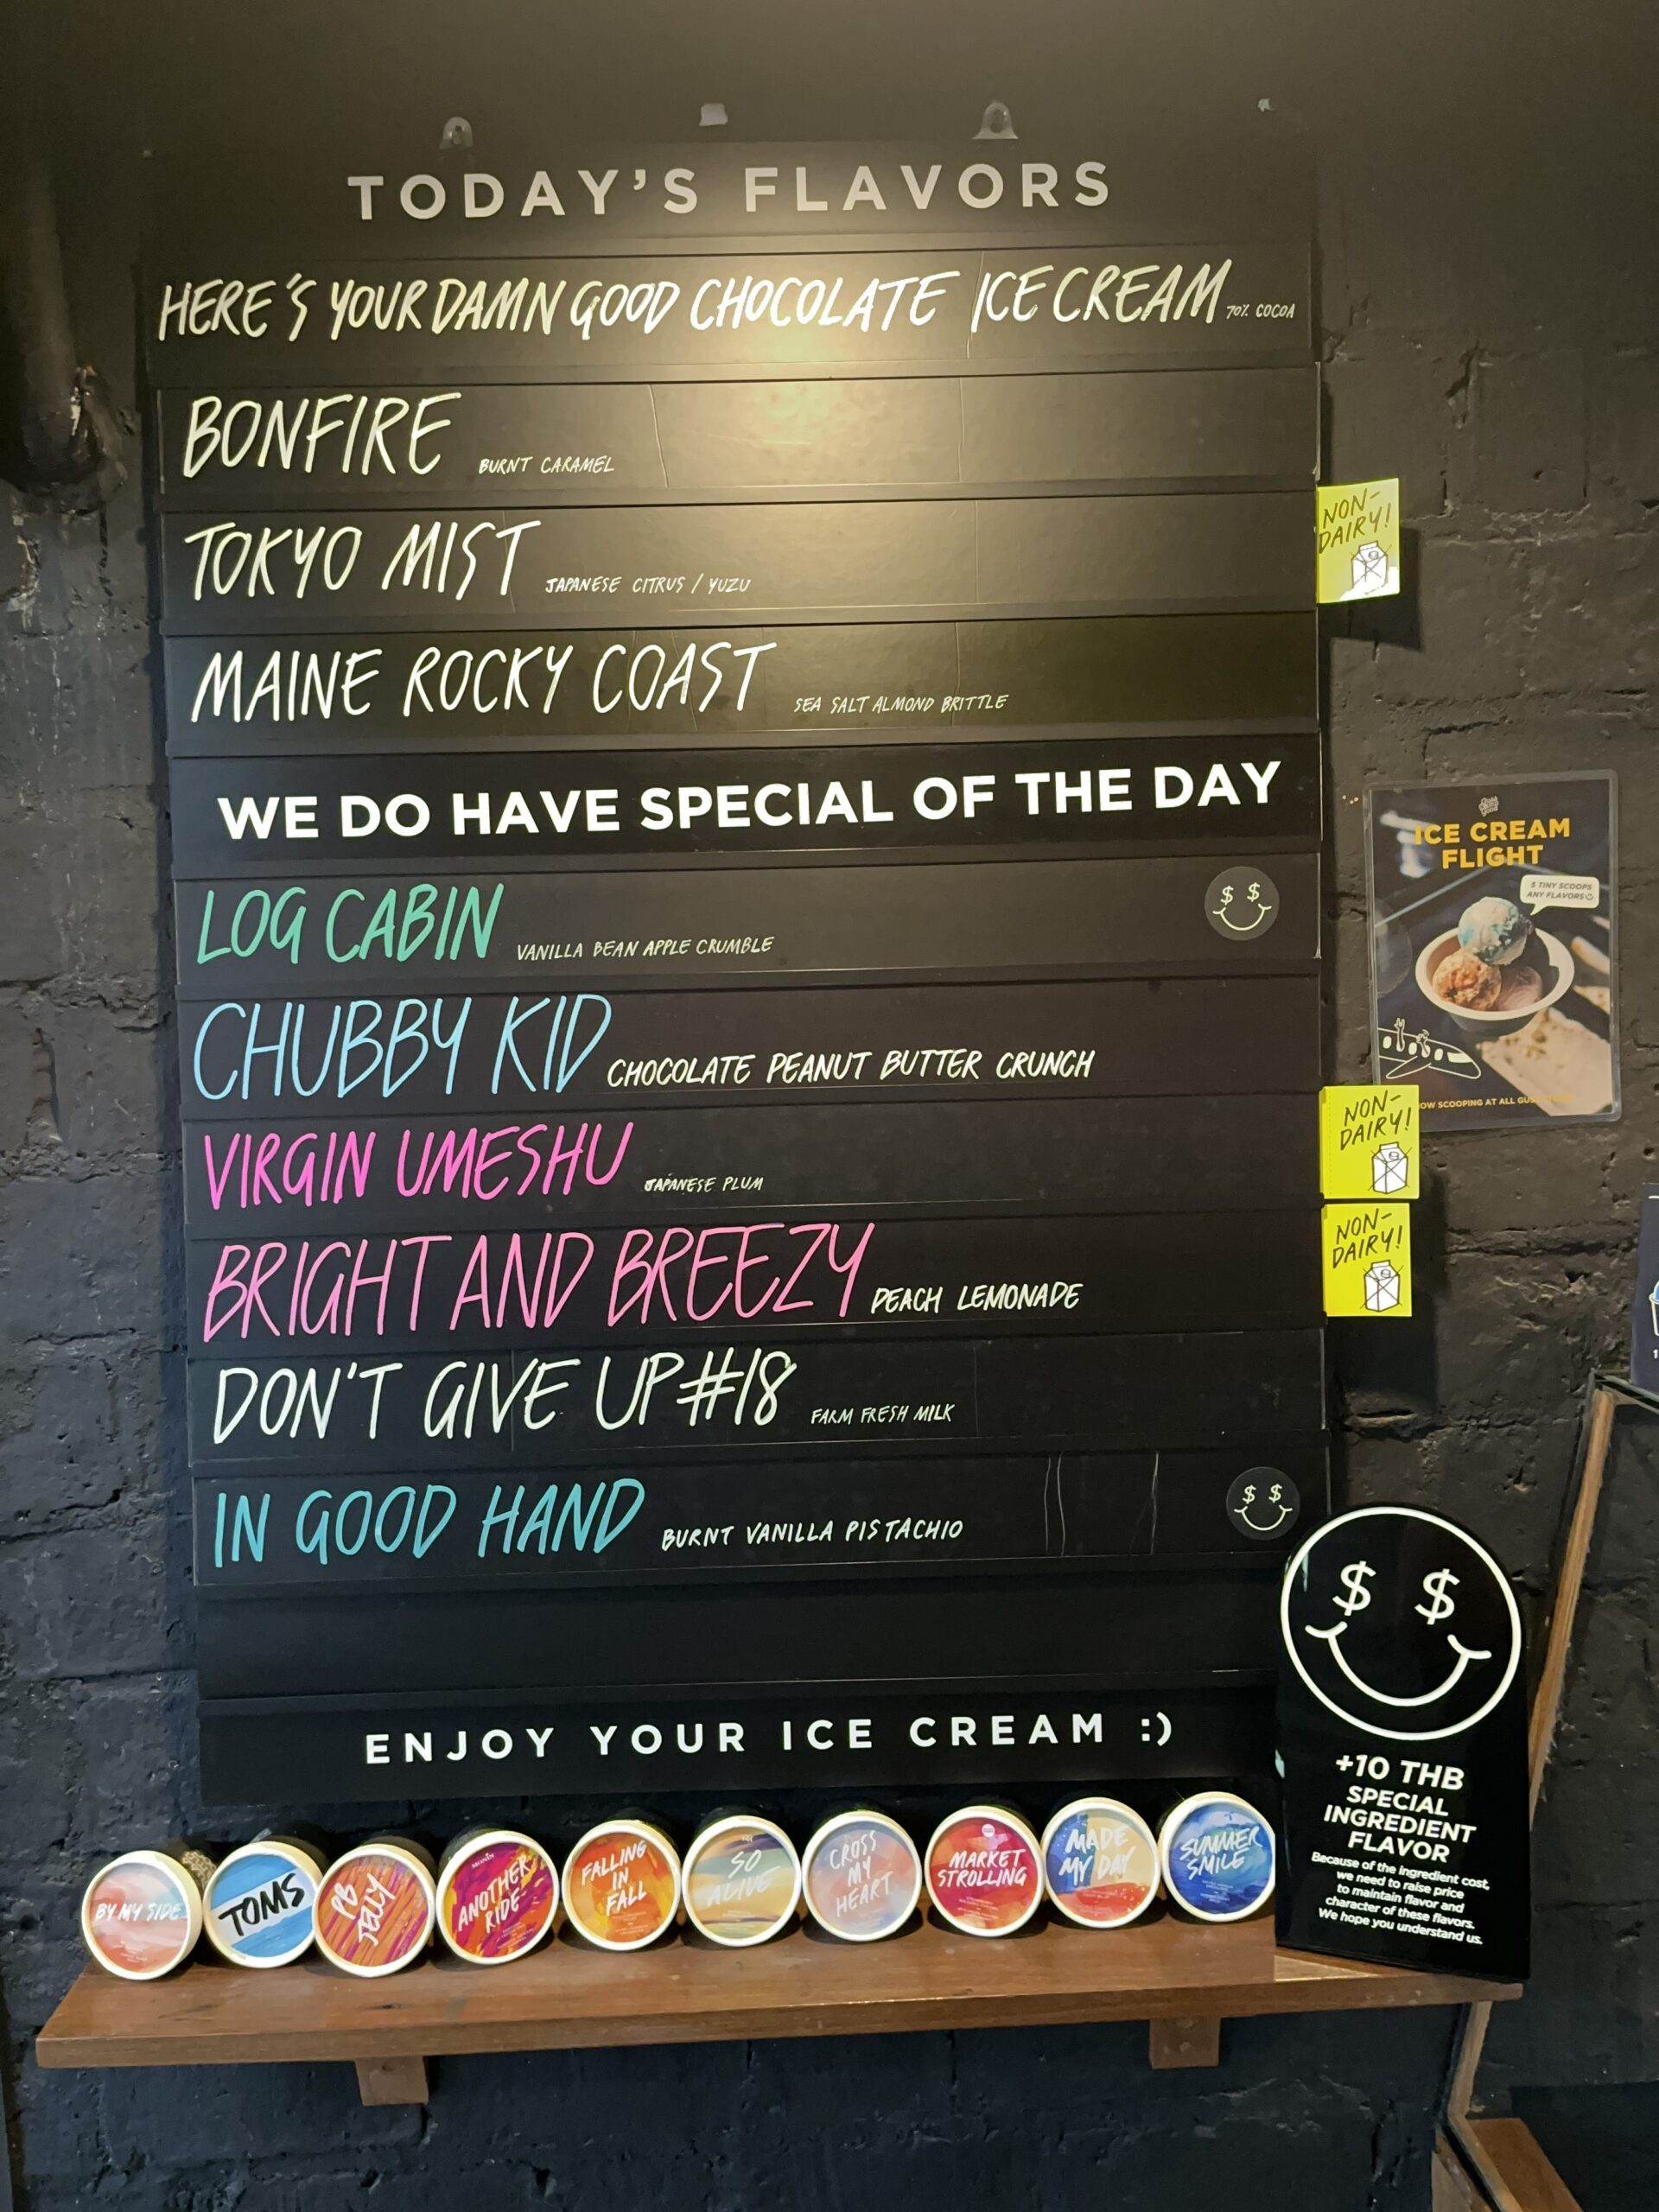 TODAY'S FLAVORS
HERE'S YOUR DAMN GOOD CHOCOLATE ICE CREAM 70% COCOA
BONFIRE BURNT CARAMEL
TOKYO MIST JAPANESE CITRUS / YUZU
NON-
DAIRY!
MAINE ROCKY COAST SEA SALT ALMOND BRITTLE
WE DO HAVE SPECIAL OF THE DAY
LOG CABIN VANILLA BEAN APPLE CRUMBLE
$ $
CHUBBY KID CHOCOLATE PEANUT BUTTER CRUNCH
VIRGIN UMESHU JAPANESE PLUM
NON-
DAIRY!
BRIGHT AND BREEZY PEACH LEMONADE
NON-
DAIRY!
DON'T GIVE UP #18 FARM FRESH MILK
IN GOOD HAND BURNT VANILLA PISTACHIO
$ $
ENJOY YOUR ICE CREAM :)
ICE CREAM
FLIGHT
5 TINY SCOOPS
ANY FLAVORS
SCOOPING AT ALL
$ $
+10 THB
SPECIAL
INGREDIENT
FLAVOR
Because of the ingredient cost,
we need to raise price
to maintain flavor and
character of these flavors.
We hope you understand us.
BY MY SIDE
TOMS
PB
JELLY
ANOTHER
RIDE
FALLING
IN
FALL
SO
ALIVE
CROSS
MY
HEART
MARKET
STROLLING
MADE
MY DAY
SUMMER
SMILE